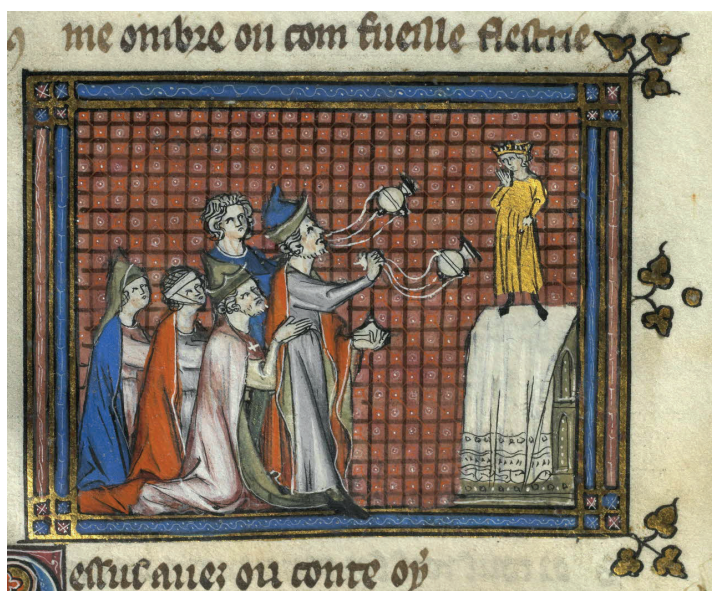 me ombre ou com fueille flestrie
essus auez ou conte oy